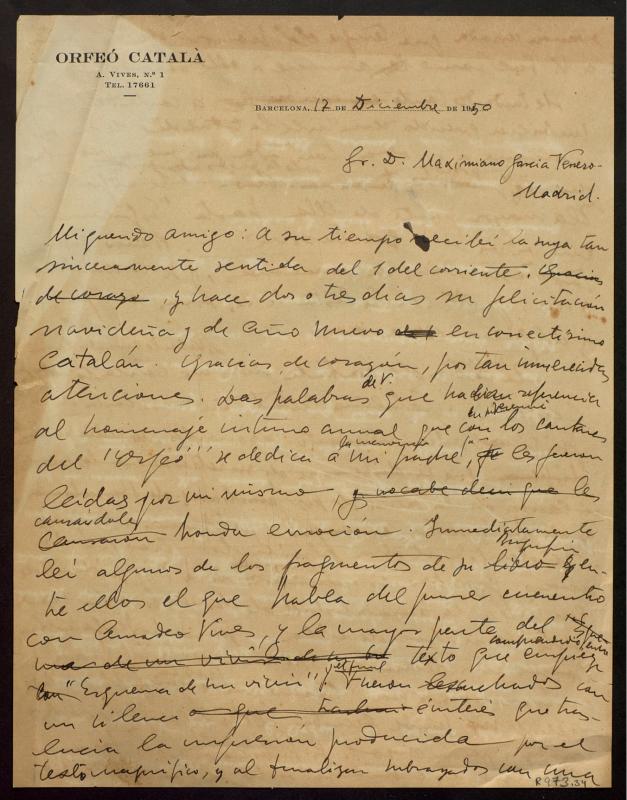 ORFEÓ CATALÀ
A. VIVES, N.º 1
TEL. 17661
BARCELONA, 17 DE Diciembre DE 1950
Sr. D. Maximiano Garcia Venero-
Madrid.
Mi querido amigo: A su tiempo recibí la suya tan
sinceramente sentida del 1 del corriente, gracias
de corazon, y hace dos o tres dias su felicitación
navideña y de año nuevo en correctísimo
Catalán. Gracias de corazón, por tan inmerecidas
atenciones. Las palabras de V. que hacian referencia
al homenaje intimo anual que en mi
con los cantores
del "Orfeó" se dedica á la memoria
mi padre, les fueron
leídas por mi mismo, y no cabe decir que les
causándole
causaron honda emoción. Inmediatamente
leí algunos de los fragmentos de su libro en-
tre ellos el que habla del primer encuentro
con Amadeo Vives, y la mayor parte del
texto que empieza
con "Esquema de un " y fueron escuchados con
un silencio e interés que tras-
lucia la impresión producida por el
texto magnífico, y al finalizar subrayados con una
R 973.34